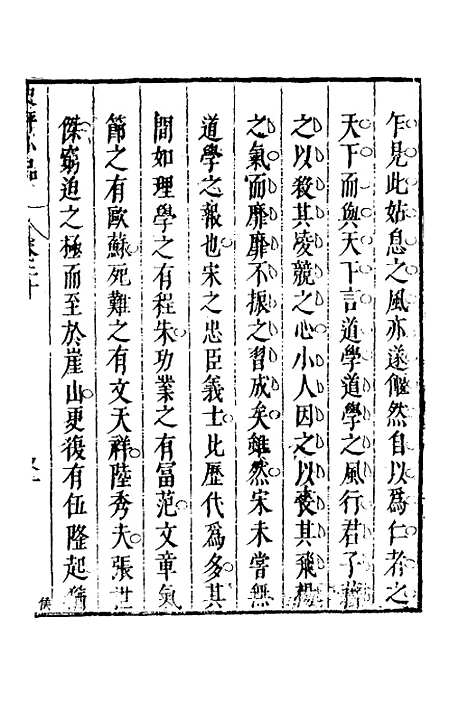 乍見此姑息之風亦遂儼然自以爲仁者之
天下而與天下言道學道學之風行君子藉
之以殺其凌競之心小人因之以喪其飛揚
之氣而靡靡不振之習成矣雖然宋未嘗無
道學之報也宋之忠臣義士比歷代爲多其
間如理學之有程朱功業之有富范文章氣
節之有歐蘇死難之有文天祥陸秀夫張世
傑窮迫之極而至於崖山更復有伍隆起
史評小品